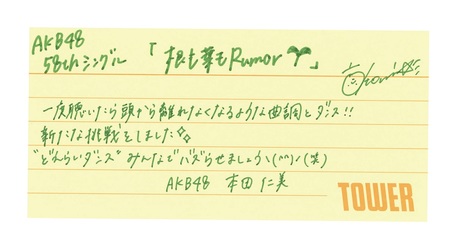 AKB48
58thシングル 「根も葉もRumor🌱」
一度聴いたら頭から離れなくなるような曲調とダンス!!
新たな挑戦をしました✨
"どえらいダンス" みんなでバズらせましょうヽ(^^)ノ(笑)
AKB48 本田 仁美
TOWER